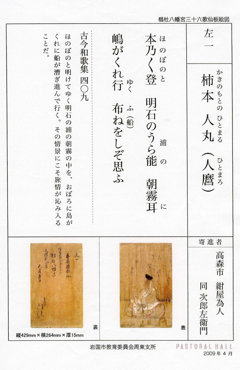 椙杜八幡宮三十六歌仙板絵図
左一
かきのもとの ひとまる
柿本 人丸(人麿)
ひとまろ
ほのぼのと
本乃く登 明石のうら能 朝霧耳
浦 の に
ゆく ふ(船)
嶋がくれ行 布ねをしぞ思ふ
古今和歌集 四〇九
ほのぼのと明けてゆく明石の浦の朝霧の中を、おぼろに島が
くれに船が漕ぎ進んで行く。その情景にこそ旅情が沁み入る
ことだ。
寄進者
高森市 紺屋為人
同 次郎左衛門
裏
表
縦429mm×横264mm×厚15mm
岩国市教育委員会周東支所
PASTORAL HALL
2009年4月